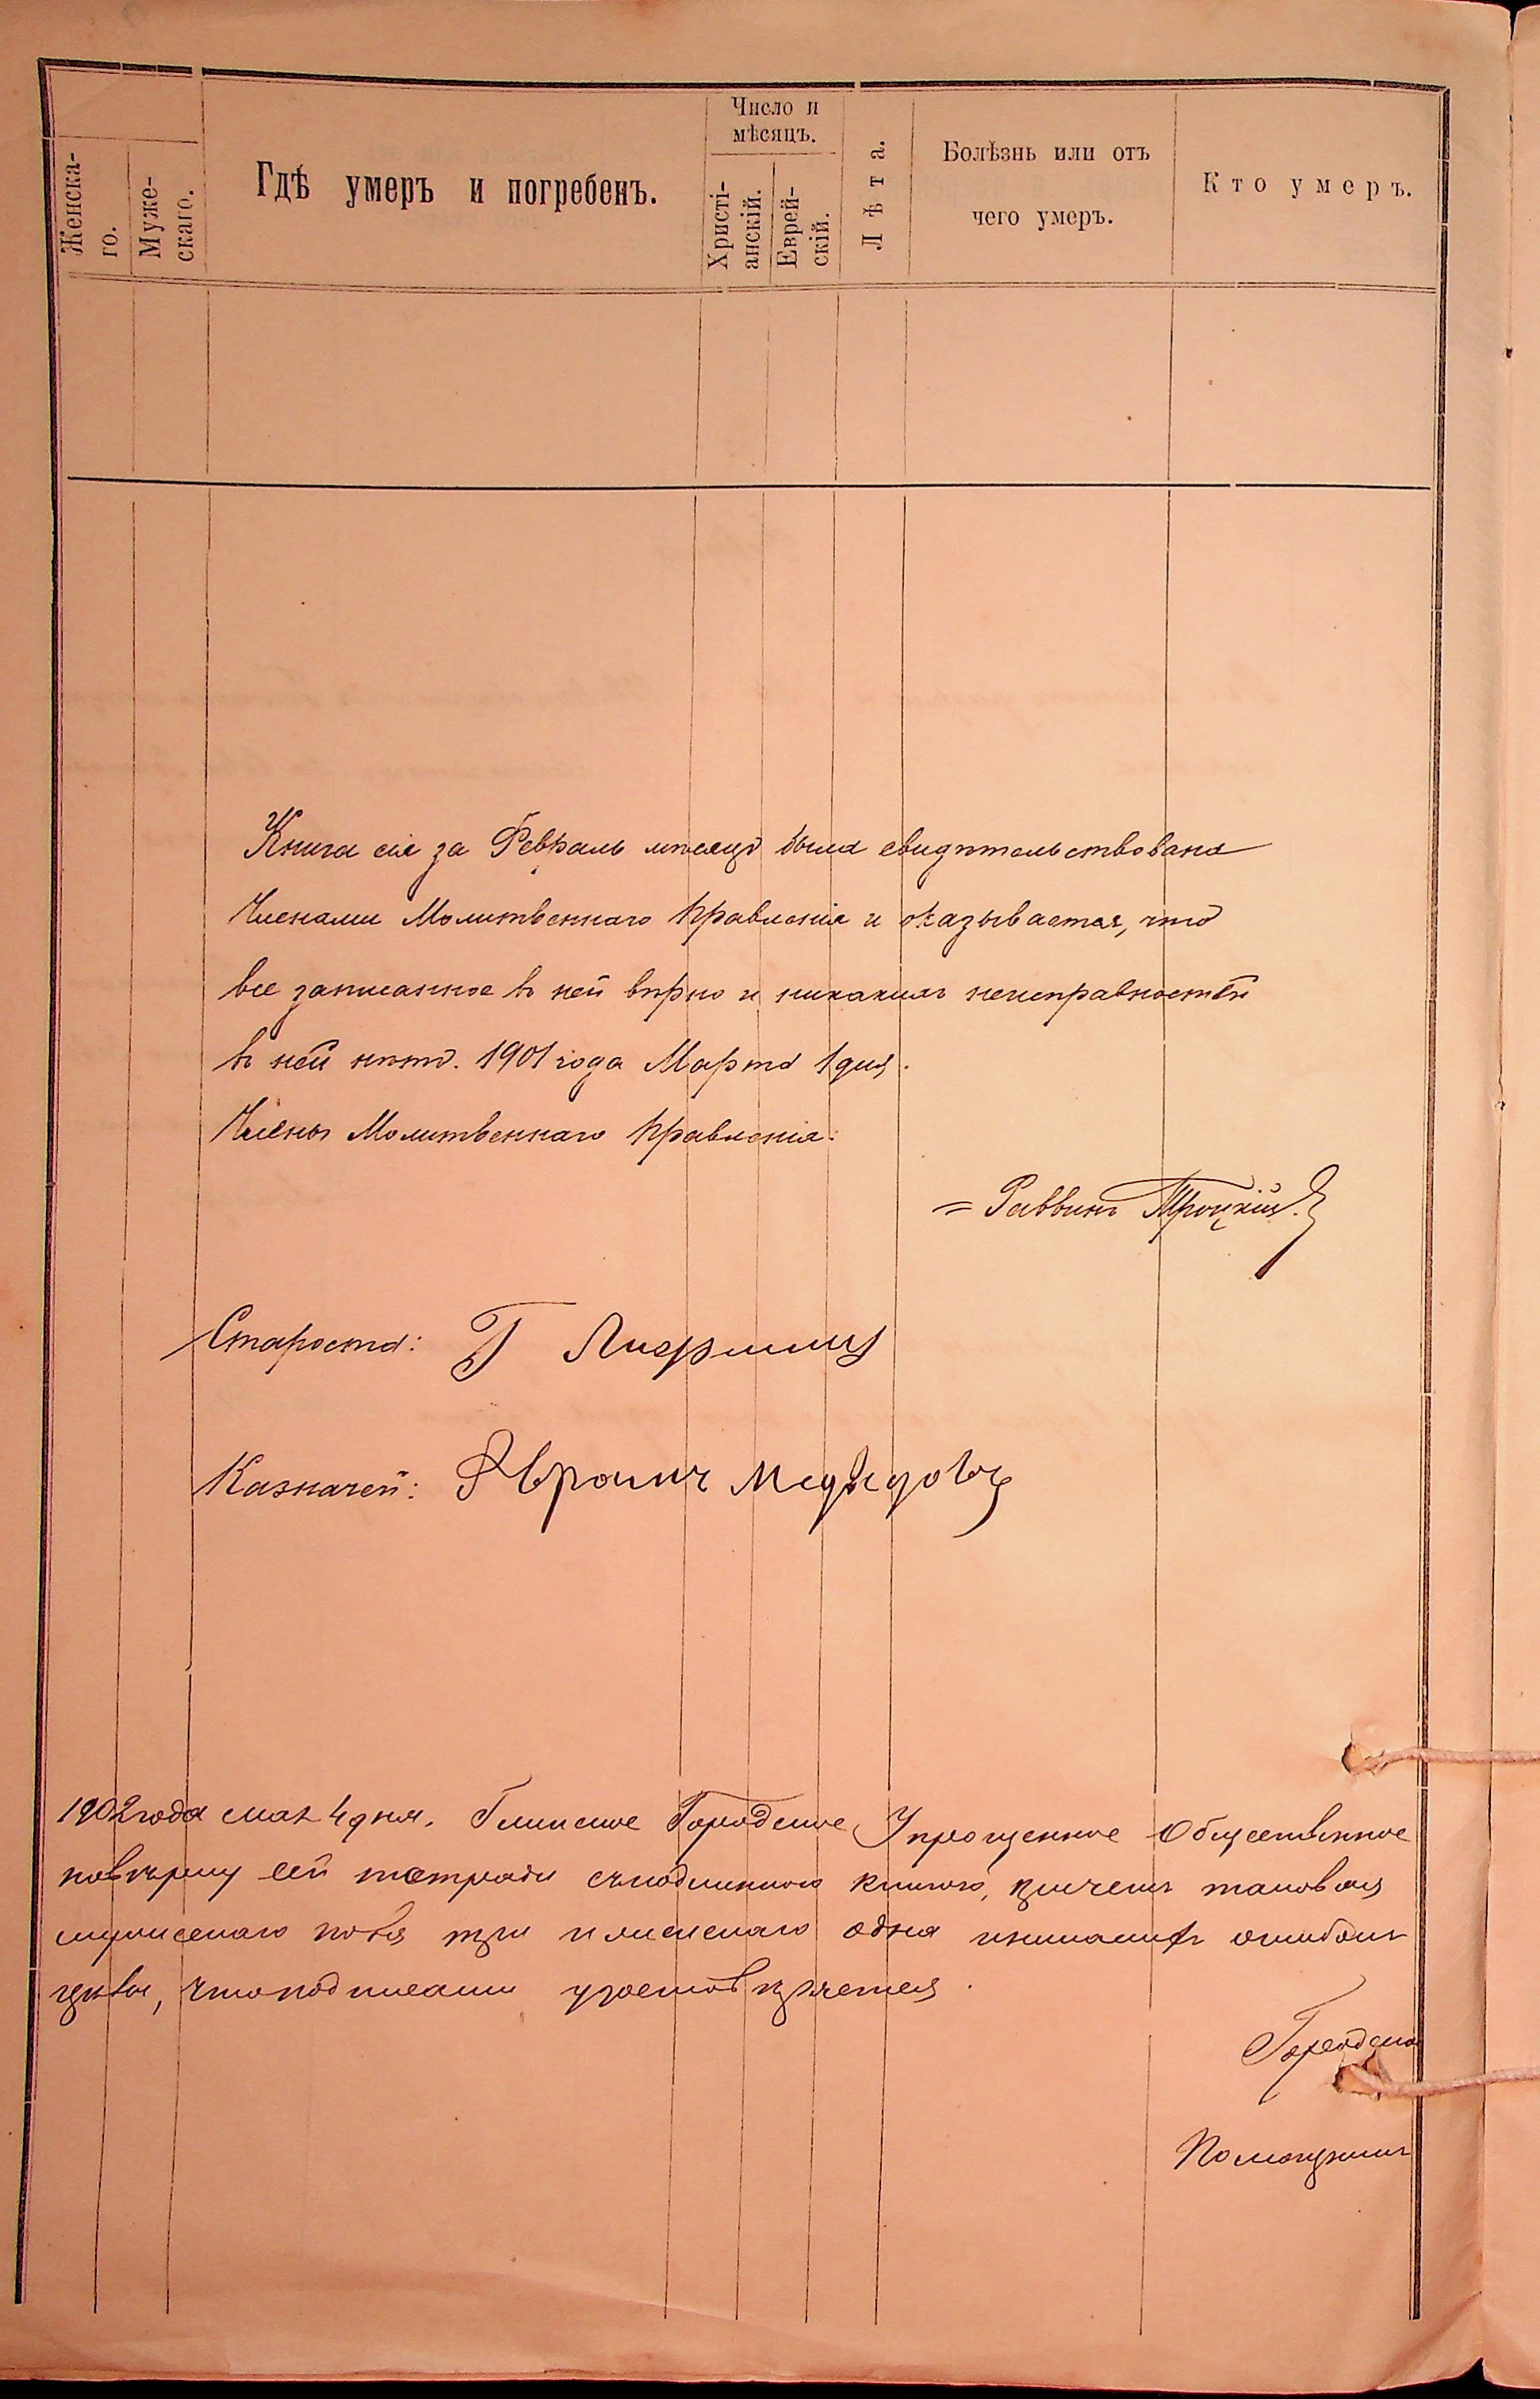 Женска-
го.
Муже-
скаго.
Гдѣ умеръ и погребенъ.
Число и
мѣсяцъ.
Христі-
анскій.
Еврей-
скій.
Лѣта.
Болѣзнь или отъ
чего умеръ.
Кто умеръ.
Книга сія за Февраль мѣсяцъ была свидѣтельствована
Членами Молитвеннаго Правленія и оказывается, что
все записанное въ ней вѣрно и никакихъ неисправностей
въ ней нѣтъ. 1901 года Марта 1 дня.
Члены Молитвеннаго Правленія:
= Раввинъ Троцкій.
Староста: Г Лифшиц
Казначей: Аврамъ Медведовъ
1902 года мая 4 дня. Глинское Городское Упрощенное Общественное
повѣрку сей тетради съ подлинною книгою, причемъ таковая
мужескаго пола три и женскаго одна и никакихъ ошибокъ
что подписями удостовѣряется.
Городско
Помощникъ